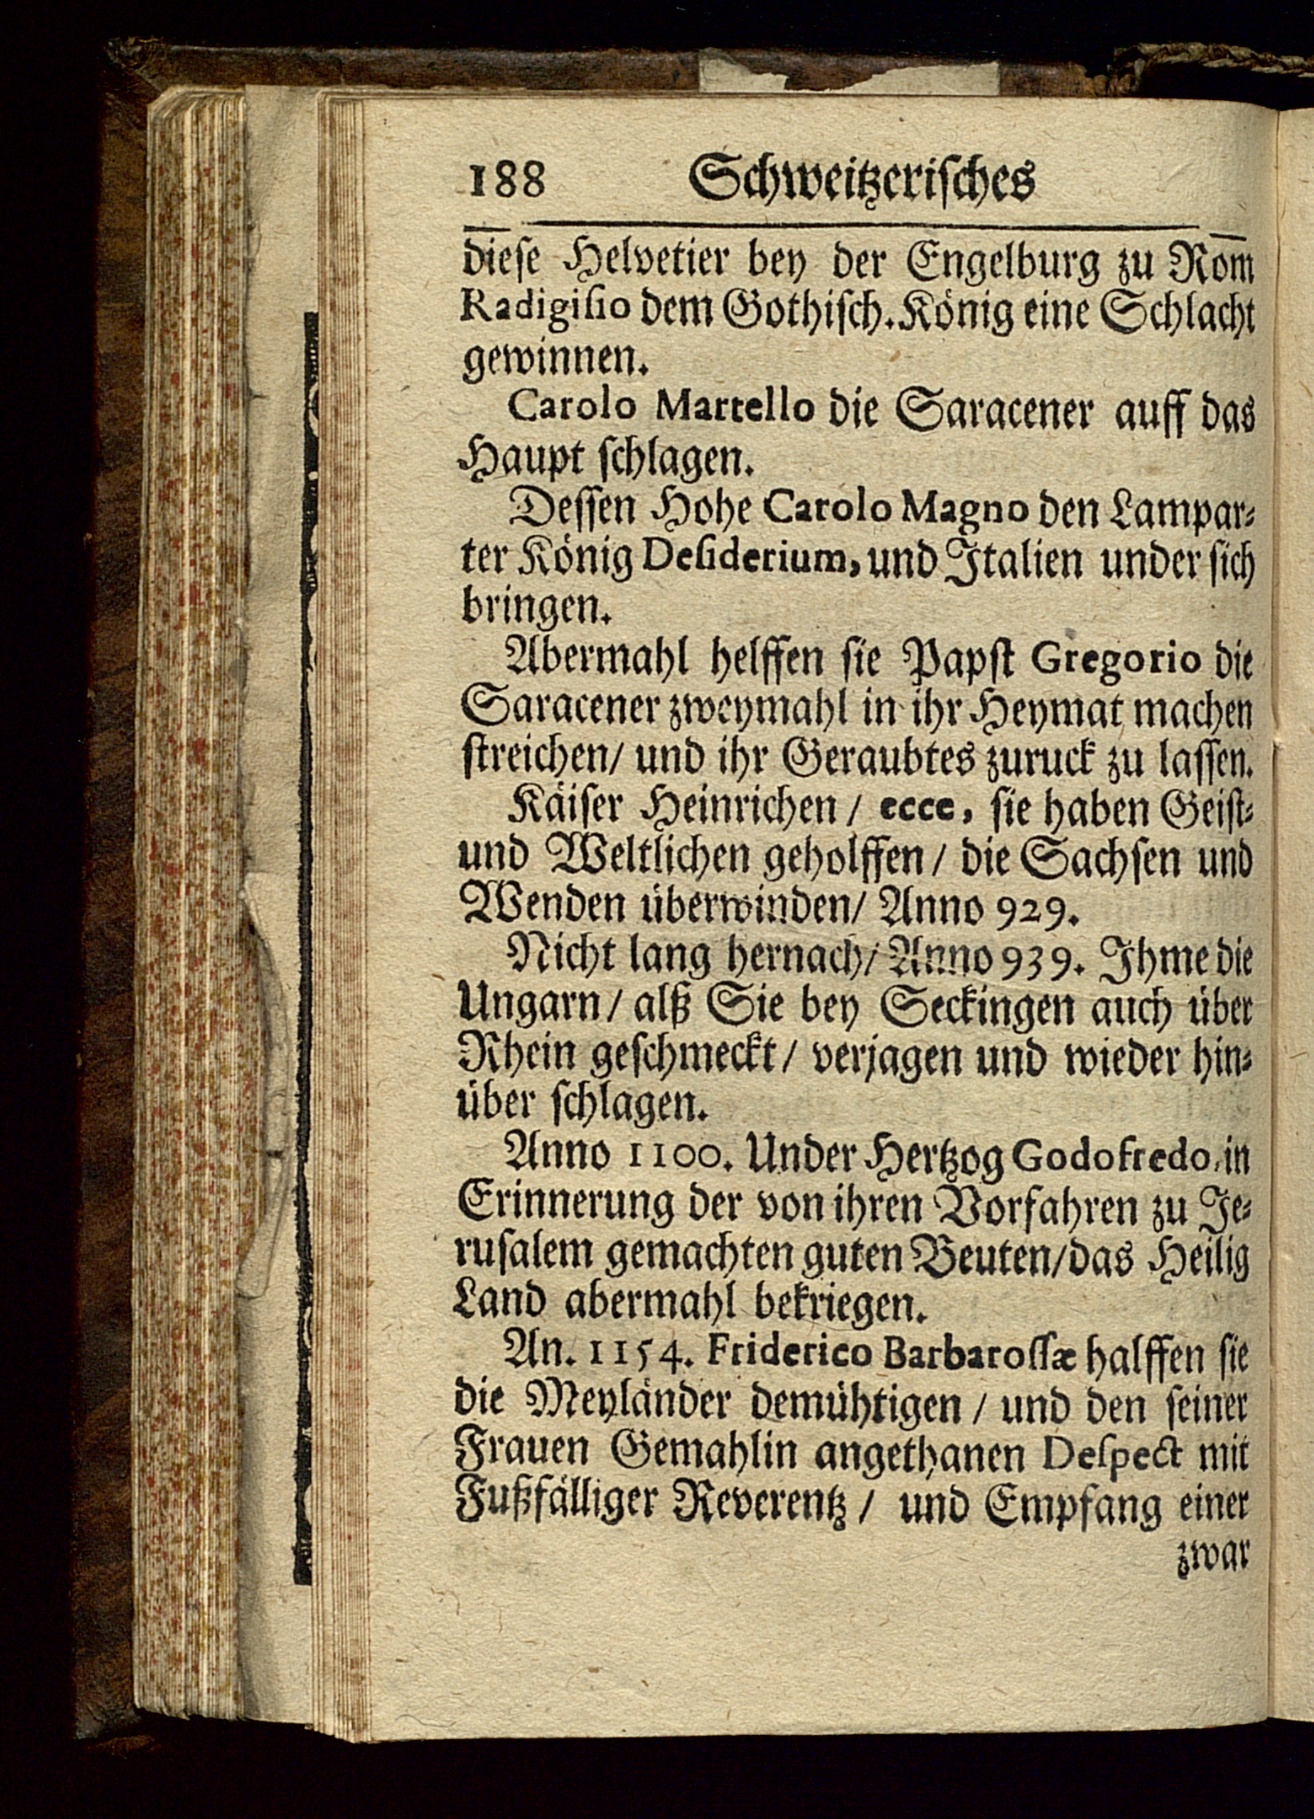 188 Schweitzerisches
diese Helvetier bey der Engelburg zu Rom
Radigisio dem Gothisch. König eine Schlacht
gewinnen.
Carolo Martello die Saracener auff das
Haupt schlagen.
Dessen Hohe Carolo Magno den Lampar-
ter König Desiderium, und Italien under sich
bringen.
Abermahl helffen sie Papst Gregorio die
Saracener zweymahl in ihr Heymat machen
streichen/ und ihr Geraubtes zuruck zu lassen.
Käiser Heinrichen / ecce, sie haben Geist-
und Weltlichen geholffen / die Sachsen und
Wenden überwinden/ Anno 929.
Nicht lang hernach/ Anno 939. Ihme die
Ungarn / alß Sie bey Seckingen auch über
Rhein geschmeckt / verjagen und wieder hin-
über schlagen.
Anno 1100. Under Hertzog Godofredo, in
Erinnerung der von ihren Vorfahren zu Je-
rusalem gemachten guten Beuten/das Heilig
Land abermahl bekriegen.
An. 1154. Friderico Barbarossæ halffen sie
die Meyländer demühtigen / und den seiner
Frauen Gemahlin angethanen Despect mit
Fußfälliger Reverentz / und Empfang einer
zwar